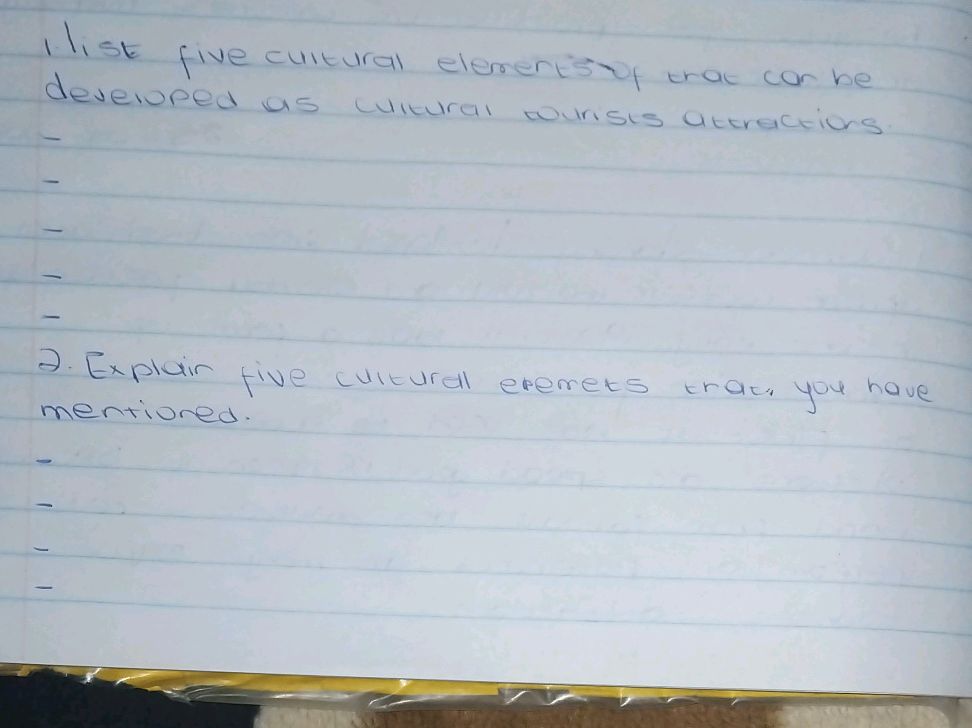 1. list five cultural elements of that can be
developed as cultural tourists attractions.
-
-
-
-
-
2. Explain five cultural eremets that, you have
mentioned.
-
-
-
-